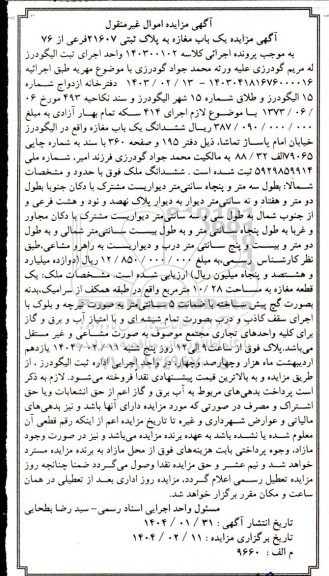 آگهی مزایده اموال غیرمنقول
آگهی مزایده یک باب مغازه به پلاک ثبتی ۲۱۶۰۷فرعی از ۷۶
به موجب پرونده اجرائی کلاسه ۱۴۰۳۰۰۱۰۲ واحد اجرای ثبت الیگودرز
له مریم گودرزی علیه ورثه محمد جواد گودرزی با موضوع مهریه طبق اجرائیه
۱۴۰۳۰۴۱۸۱۶۷۶۰۰۰۰۱۶ - ۱۴۰۳/۰۲/۱۳ دفترخانه ازدواج شماره
۱۵ الیگودرز و طلاق شماره ۱۵ شهر الیگودرز و سند نکاحیه ۴۹۳ مورخ ۰۶
/۰۶/ ۱۳۷۳ با موضوع لازم اجرای ۴۱۴ سکه تمام بهار آزادی به مبلغ
۳۸۷/۰۹۰/۰۰۰/۰۰۰ ریال ششدانگ یک باب مغازه واقع در الیگودرز
خیابان امام پاساژ تماشا، ذیل دفتر ۱۹۵ و صفحه ۳۶۰ با سند به شماره چاپی
۰۷۹۰۶۵الف ۸۸/۳۲ به مالکیت محمد جواد گودرزی فرزند امیر. شماره ملی
۵۹۲۹۸۵۹۹۱۴ ثبت شده است . ششدانگ ملک فوق با حدود و مشخصات
شمالا: بطول سه متر و پنجاه سانتی‌متر دیواریست مشترک با دکان جنوبا بطول
دو متر و هفتاد و نه سانتی‌متر دیوار به دیوار پلاک نهصد و نود و هشت فرعی و
از جنوب شمال به طول سی و پنج سانتی‌متر دیواریست مشترک با دکان مجاور
و غربا به طول پنجاه سانتی‌متر و به طول بیست سانتی‌متر شمالی و به طول
دو متر و بیست و پنج سانتی متر درب و دیواریست به راهرو مشاعی،طبق
نظر کارشناس رسمی،به مبلغ ۱۲/۸۵۰/۰۰۰/۰۰۰ ریال (دوازده میلیارد
و هشتصد و پنجاه میلیون ریال) ارزیابی شده است. مشخصات ملک: یک
قطعه مغازه به مساحت ۱۰/۲۸ مترمربع واقع در طبقه همکف از سرامیک،بدنه
بصورت گچ پیش ساخته با ضخامت ۵ سانتی‌متر به صورت گرچه و بلوک با
اجرای سقف کاذب و درب بصورت تمام شیشه ای و با امتیاز آب و برق و گاز
برای کلیه واحدهای تجاری مجتمع موصوف به صورت مشاعی و غیر مستقل
می‌باشد.پلاک فوق از ساعت۹ الی۱۲ روز پنج شنبه ۱۴۰۴/۰۲/۱۱ یازدهم
اردیبهشت ماه هزار وچهارصد وچهار، در واحد اجرایی اداره ثبت الیگودرز ، از
طریق مزایده و به بالاترین قیمت پیشنهادی نقدا فروخته می‌شود. لازم به ذکر
است پرداخت بدهی‌های مربوط به آب برق و گاز اعم از حق انشعابات ویا حق
اشتراک و مصرف در صورتی که مورد مزایده دارای آنها باشد و نیز بدهی‌های
مالیاتی و عوارض شهرداری و غیره تا تاریخ مزایده اعم از اینکه رقم قطعی آن
معلوم شده یا نشده باشد به عهده برنده مزایده می‌باشد و نیز در صورت وجود
مازاد، وجوه پرداختی بابت هزینه‌های فوق از محل مازاد به برنده مزایده مسترد
خواهد شد و نیم عشر و حق مزایده نقدا وصول می‌گردد ضمنا چنانچه روز
مزایده تعطیل رسمی اعلام گردد، مزایده روز اداری بعد از تعطیلی در همان
ساعت و مکان مقرر برگزار خواهد شد.
مسئول واحد اجرایی اسناد رسمی- سید رضا بطحایی
تاریخ انتشار آگهی : ۳۱ / ۰۱ / ۱۴۰۴
تاریخ برگزاری مزایده : ۱۱ / ۰۲ / ۱۴۰۴
م الف: ۹۶۶۰